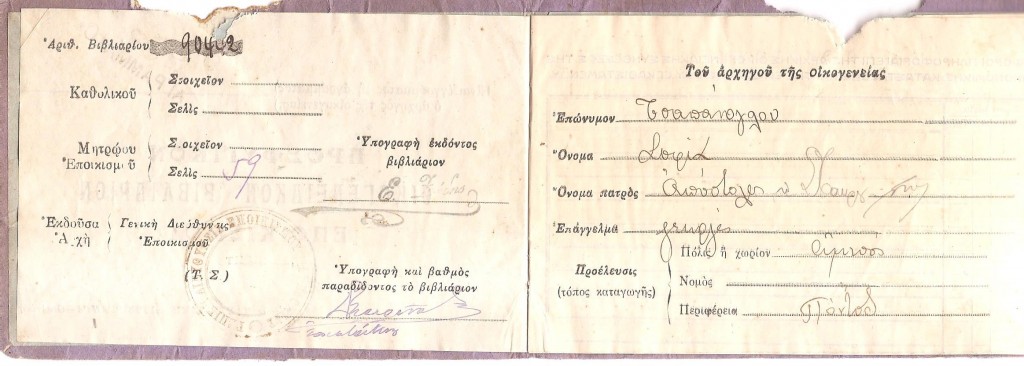 Ἀριθ. Βιβλιαρίου 90402
Καθολικοῦ
Στοιχεῖον
Σελὶς
Μητρῴου Ἐποικισμοῦ
Στοιχεῖον
Σελὶς 59
Ὑπογραφὴ ἐκδόντος
βιβλιάριον
Ἐκδοῦσα Ἀρχὴ
Γενικὴ Διεύθυνσις
Ἐποικισμοῦ
(Τ. Σ)
Ὑπογραφὴ καὶ βαθμὸς
παραδίδοντος τὸ βιβλιάριον
Τοῦ ἀρχηγοῦ τῆς οἰκογενείας
Ἐπώνυμον Τσαπάνογλου
Ὄνομα Σοφία
Ὄνομα πατρὸς Ἀπόστολος
Ἐπάγγελμα γεωργὸς
Προέλευσις
(τόπος καταγωγῆς)
Πόλις ἢ χωρίον
Νομὸς
Περιφέρεια Πόντος